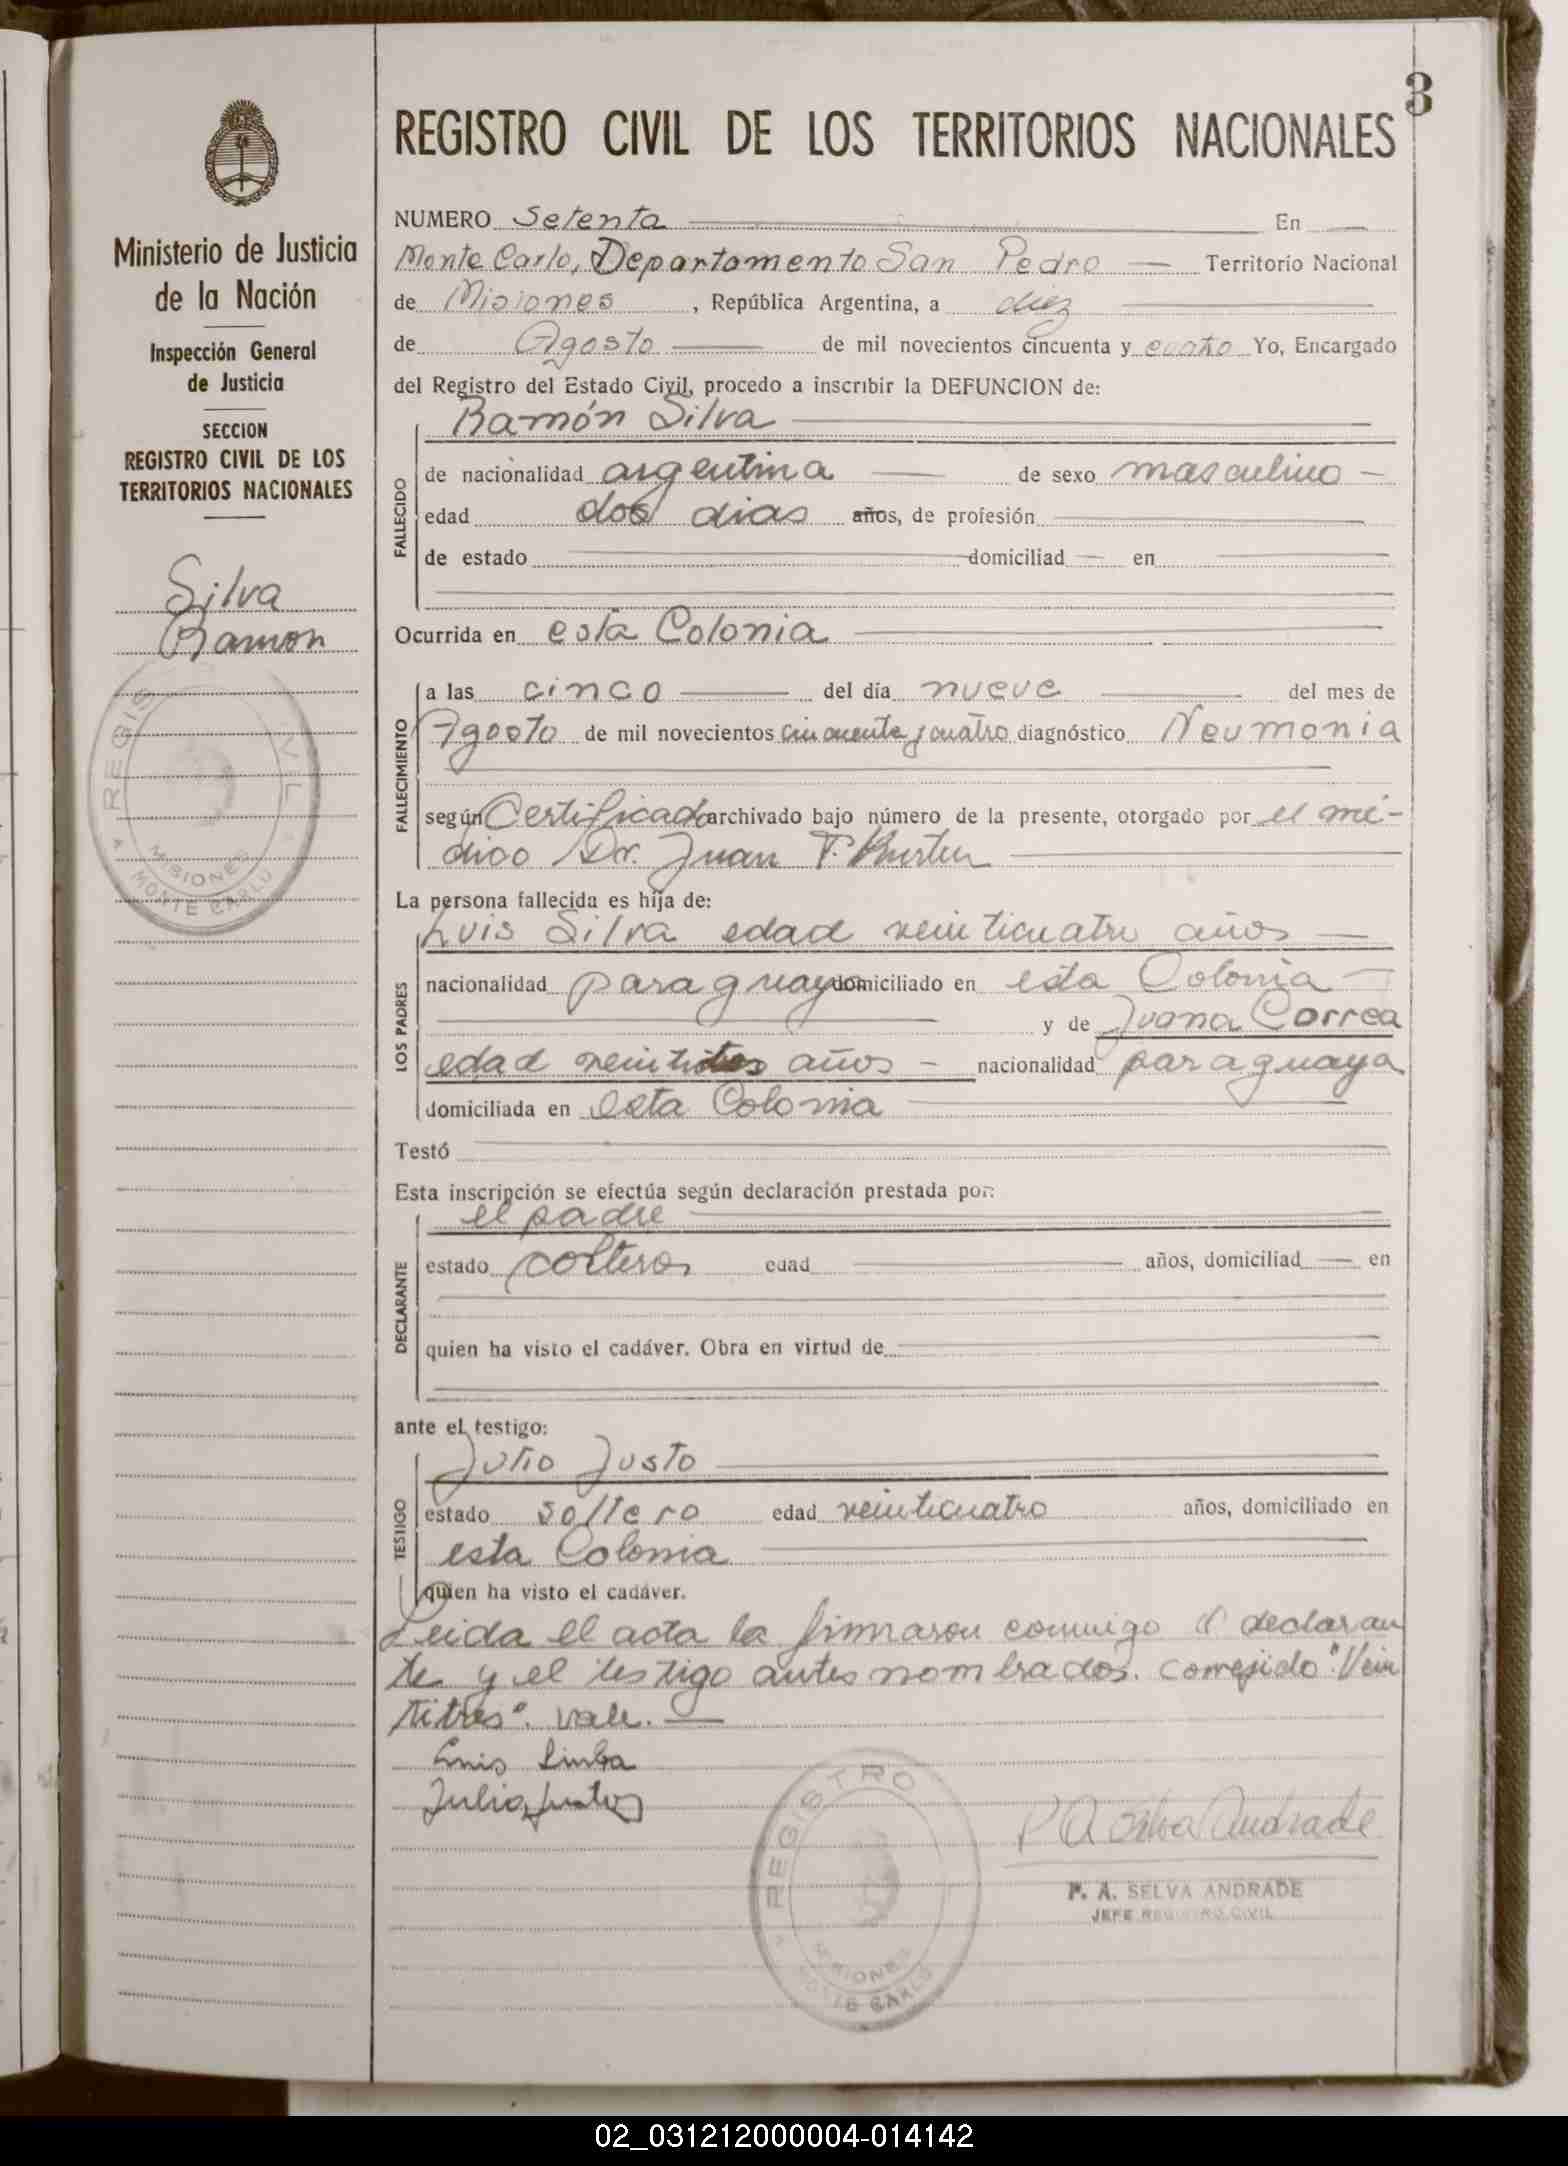 3
REGISTRO CIVIL DE LOS TERRITORIOS NACIONALES
Ministerio de Justicia
de la Nación
Inspección General
de Justicia
SECCION
REGISTRO CIVIL DE LOS
TERRITORIOS NACIONALES
Silva
Ramon
REGIS VIL
MISIONES
MONTE CARLO
NUMERO Setenta En
Monte Carlo, Departamento San Pedro Territorio Nacional
de Misiones, República Argentina, a diez
de Agosto de mil novecientos cincuenta y cuatro Yo, Encargado
del Registro del Estado Civil, procedo a inscribir la DEFUNCION de:
FALLECIDO
Ramón Silva
de nacionalidad argentina de sexo masculino
edad dos dias años, de profesión
de estado domiciliad en
Ocurrida en esta Colonia
FALLECIMIENTO
a las cinco del día nueve del mes de
Agosto de mil novecientos cincuenta y cuatro diagnóstico Neumonia
según Certificado archivado bajo número de la presente, otorgado por el mé-
dico Dr. Juan
La persona fallecida es hija de:
LOS PADRES
Luis Silva edad veinticuatro años
nacionalidad paraguayo domiciliado en esta Colonia
y de Juana Correa
edad veintitres años nacionalidad paraguaya
domiciliada en esta Colonia
Testó
Esta inscripción se efectúa según declaración prestada por:
DECLARANTE
el padre
estado soltero, edad años, domiciliad en
quien ha visto el cadáver. Obra en virtud de
ante el testigo:
TESTIGO
Julio Justo
estado soltero edad veinticuatro años, domiciliado en
esta Colonia
quien ha visto el cadáver.
Leida el acta la firmaron conmigo el declaran
te y el testigo antes nombrados. corregido "Vein
titres". vale.
Luis
Julio Justo
REGISTRO
MISIONES
MONTE CARLO
P A Selva Andrade
P. A. SELVA ANDRADE
JEFE REGISTRO CIVIL
02_031212000004-014142